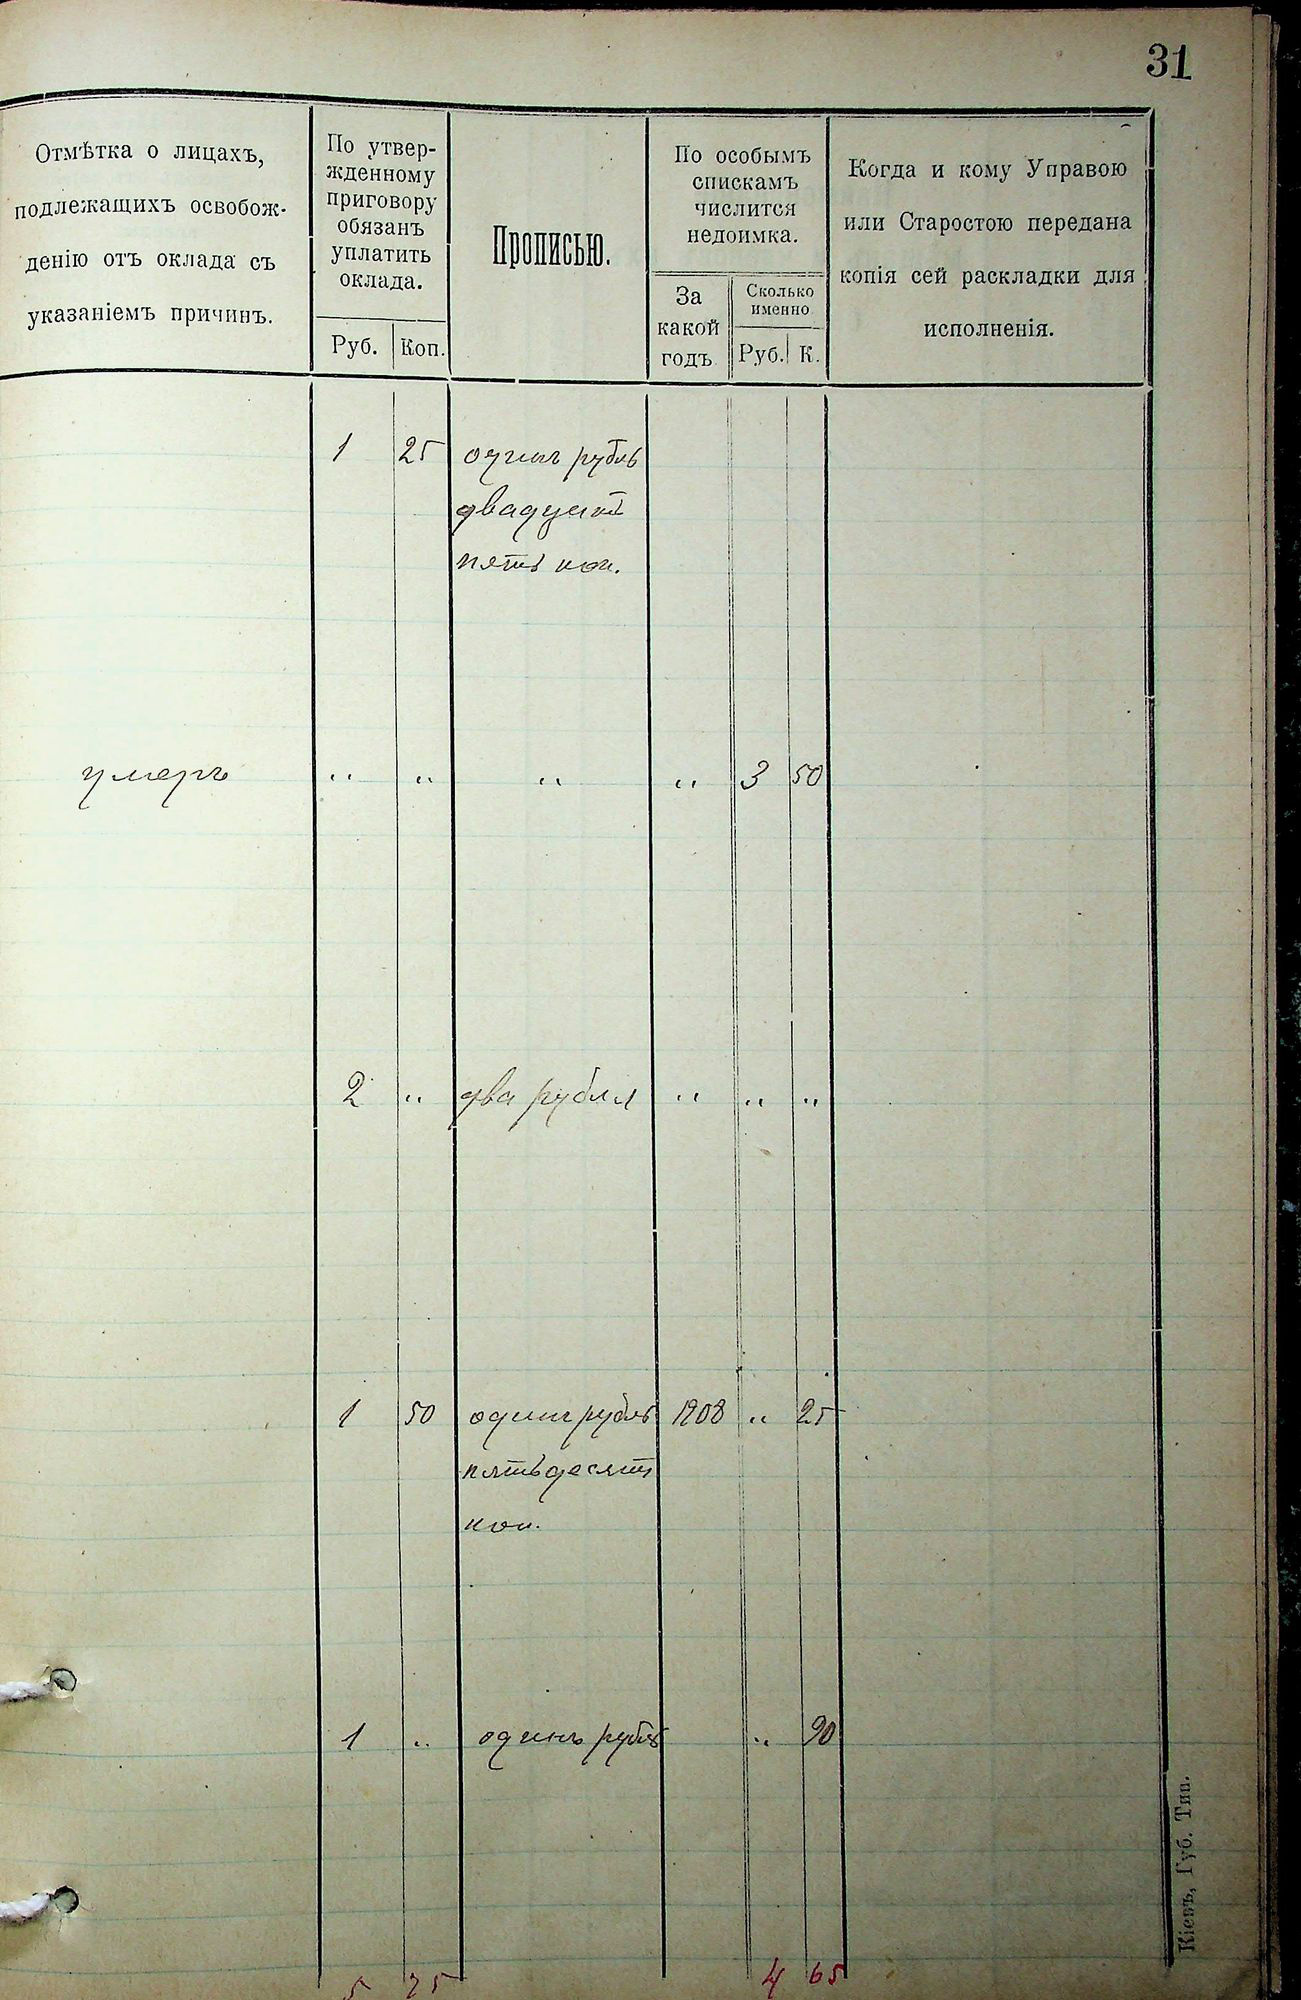 31
Отмѣтка о лицахъ,
подлежащихъ освобож-
денію отъ оклада съ
указаніемъ причинъ.
По утвер-
жденному
приговору
обязанъ
уплатить
оклада.
Руб. Коп.
Прописью.
По особымъ
спискамъ
числится
недоимка.
За
какой
годъ
Сколько
именно
Руб. К.
Когда и кому Управою
или Старостою передана
копія сей раскладки для
исполненія.
1 25 одинъ рубль
двадцать
пять коп.
умеръ " " " " 3 50
2 " два рубля " " "
1 50 одинъ рубль 1908 " 25
пятьдесятъ
коп.
1 " одинъ рубль " 90
5 75 4 65
Кіевъ, Губ. Тип.